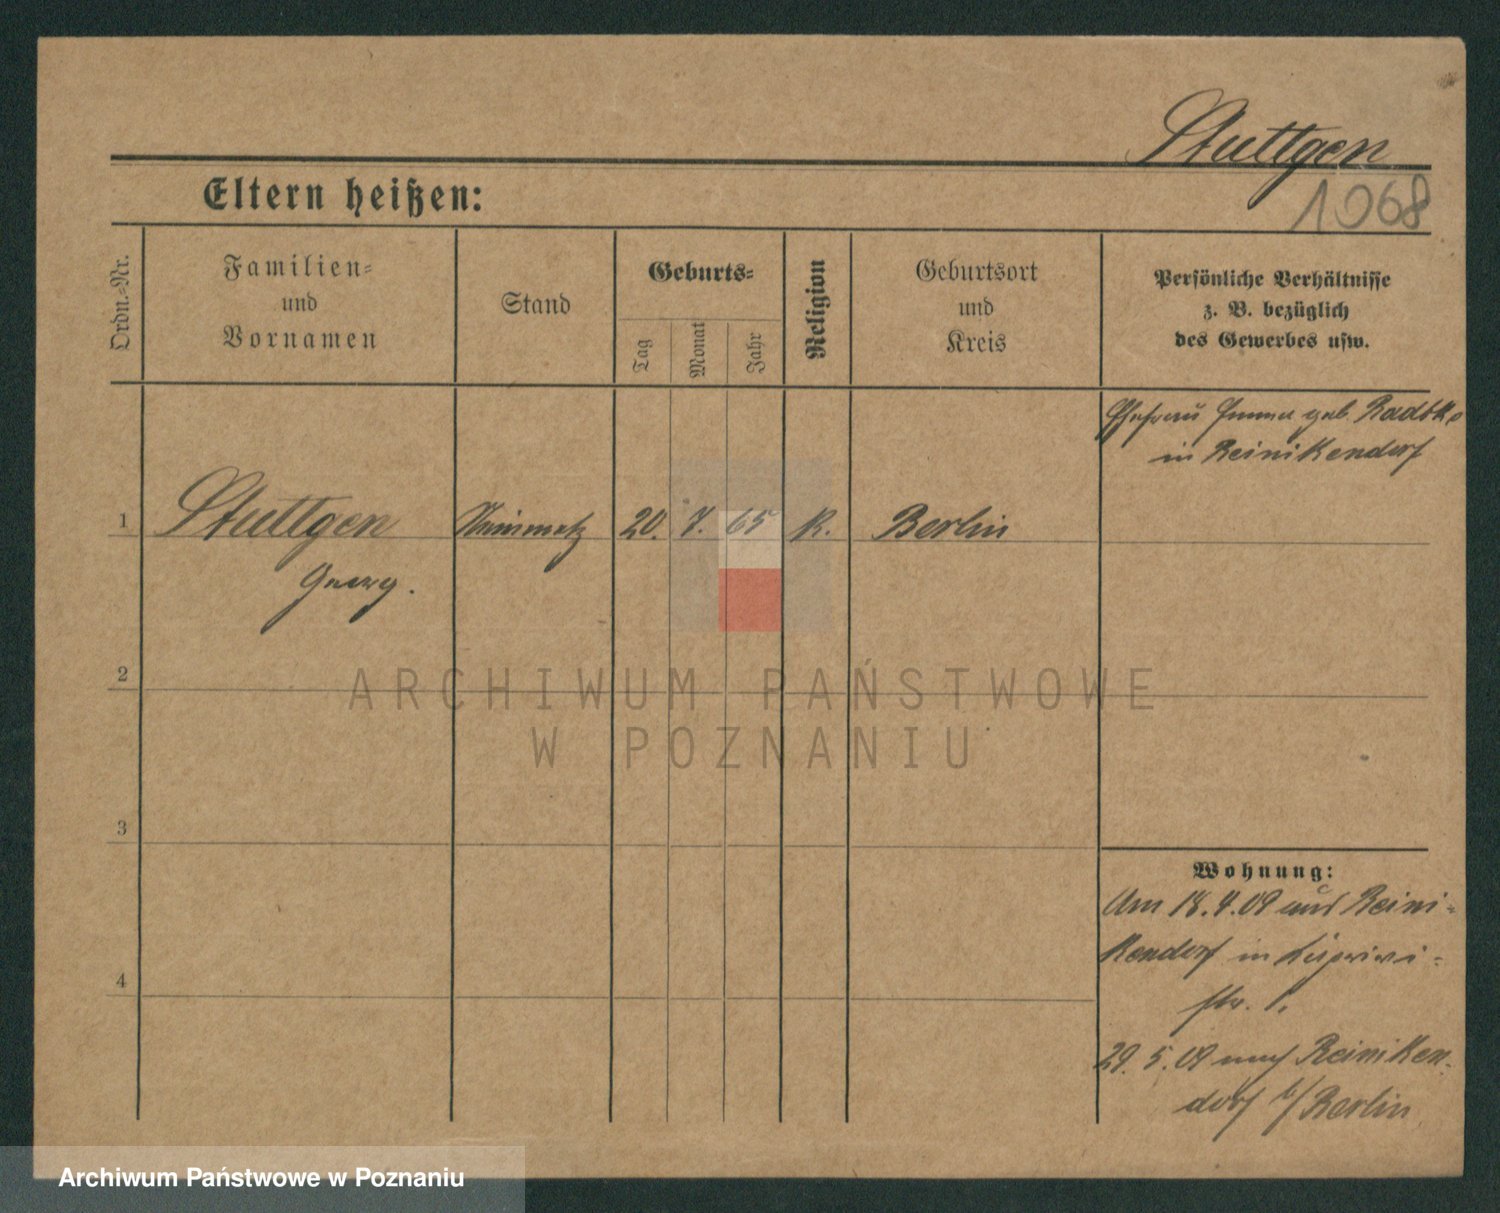 Stuttgen
1068
Eltern heißen:
Ordn.-Nr.
Familien-
und
Vornamen
Stand
Geburts-
Tag
Monat
Jahr
Religion
Geburtsort
und
Kreis
Persönliche Verhältnisse
z. B. bezüglich
des Gewerbes usw.
Ehefrau Emma geb. Radtke
in Reinikendorf
1
Stuttgen
Steinmetz
20.
7.
65
K.
Berlin
Georg.
2
ARCHIWUM PAŃSTWOWE
W POZNANIU
3
Wohnung:
Am 18.4.09 aus Reini-
kendorf in
4
str.
29.5.09 nach Reiniken-
dorf b/Berlin
Archiwum Państwowe w Poznaniu